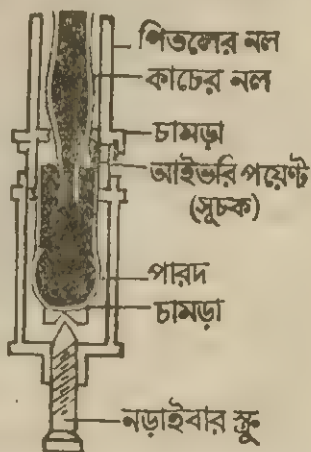 পিতলের নল
কাচের নল
চামড়া
আইভরি পয়েন্ট
(সূচক)
পারদ
চামড়া
নড়াইবার স্ক্রু